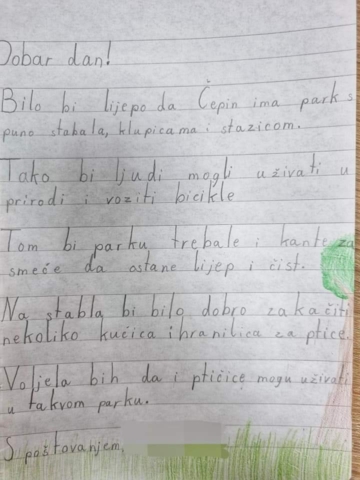 Dobar dan!
Bilo bi lijepo da Čepin ima park s
puno stabala, klupicama i stazicom.
Tako bi ljudi mogli uživati u
prirodi i voziti bicikle
Tom bi parku trebale i kante za
smeće da ostane lijep i čist.
Na stabla bi bilo dobro zakačiti
nekoliko kućica i hranilica za ptice.
Voljela bih da i ptičice mogu uživati
u takvom parku.
S poštovanjem,